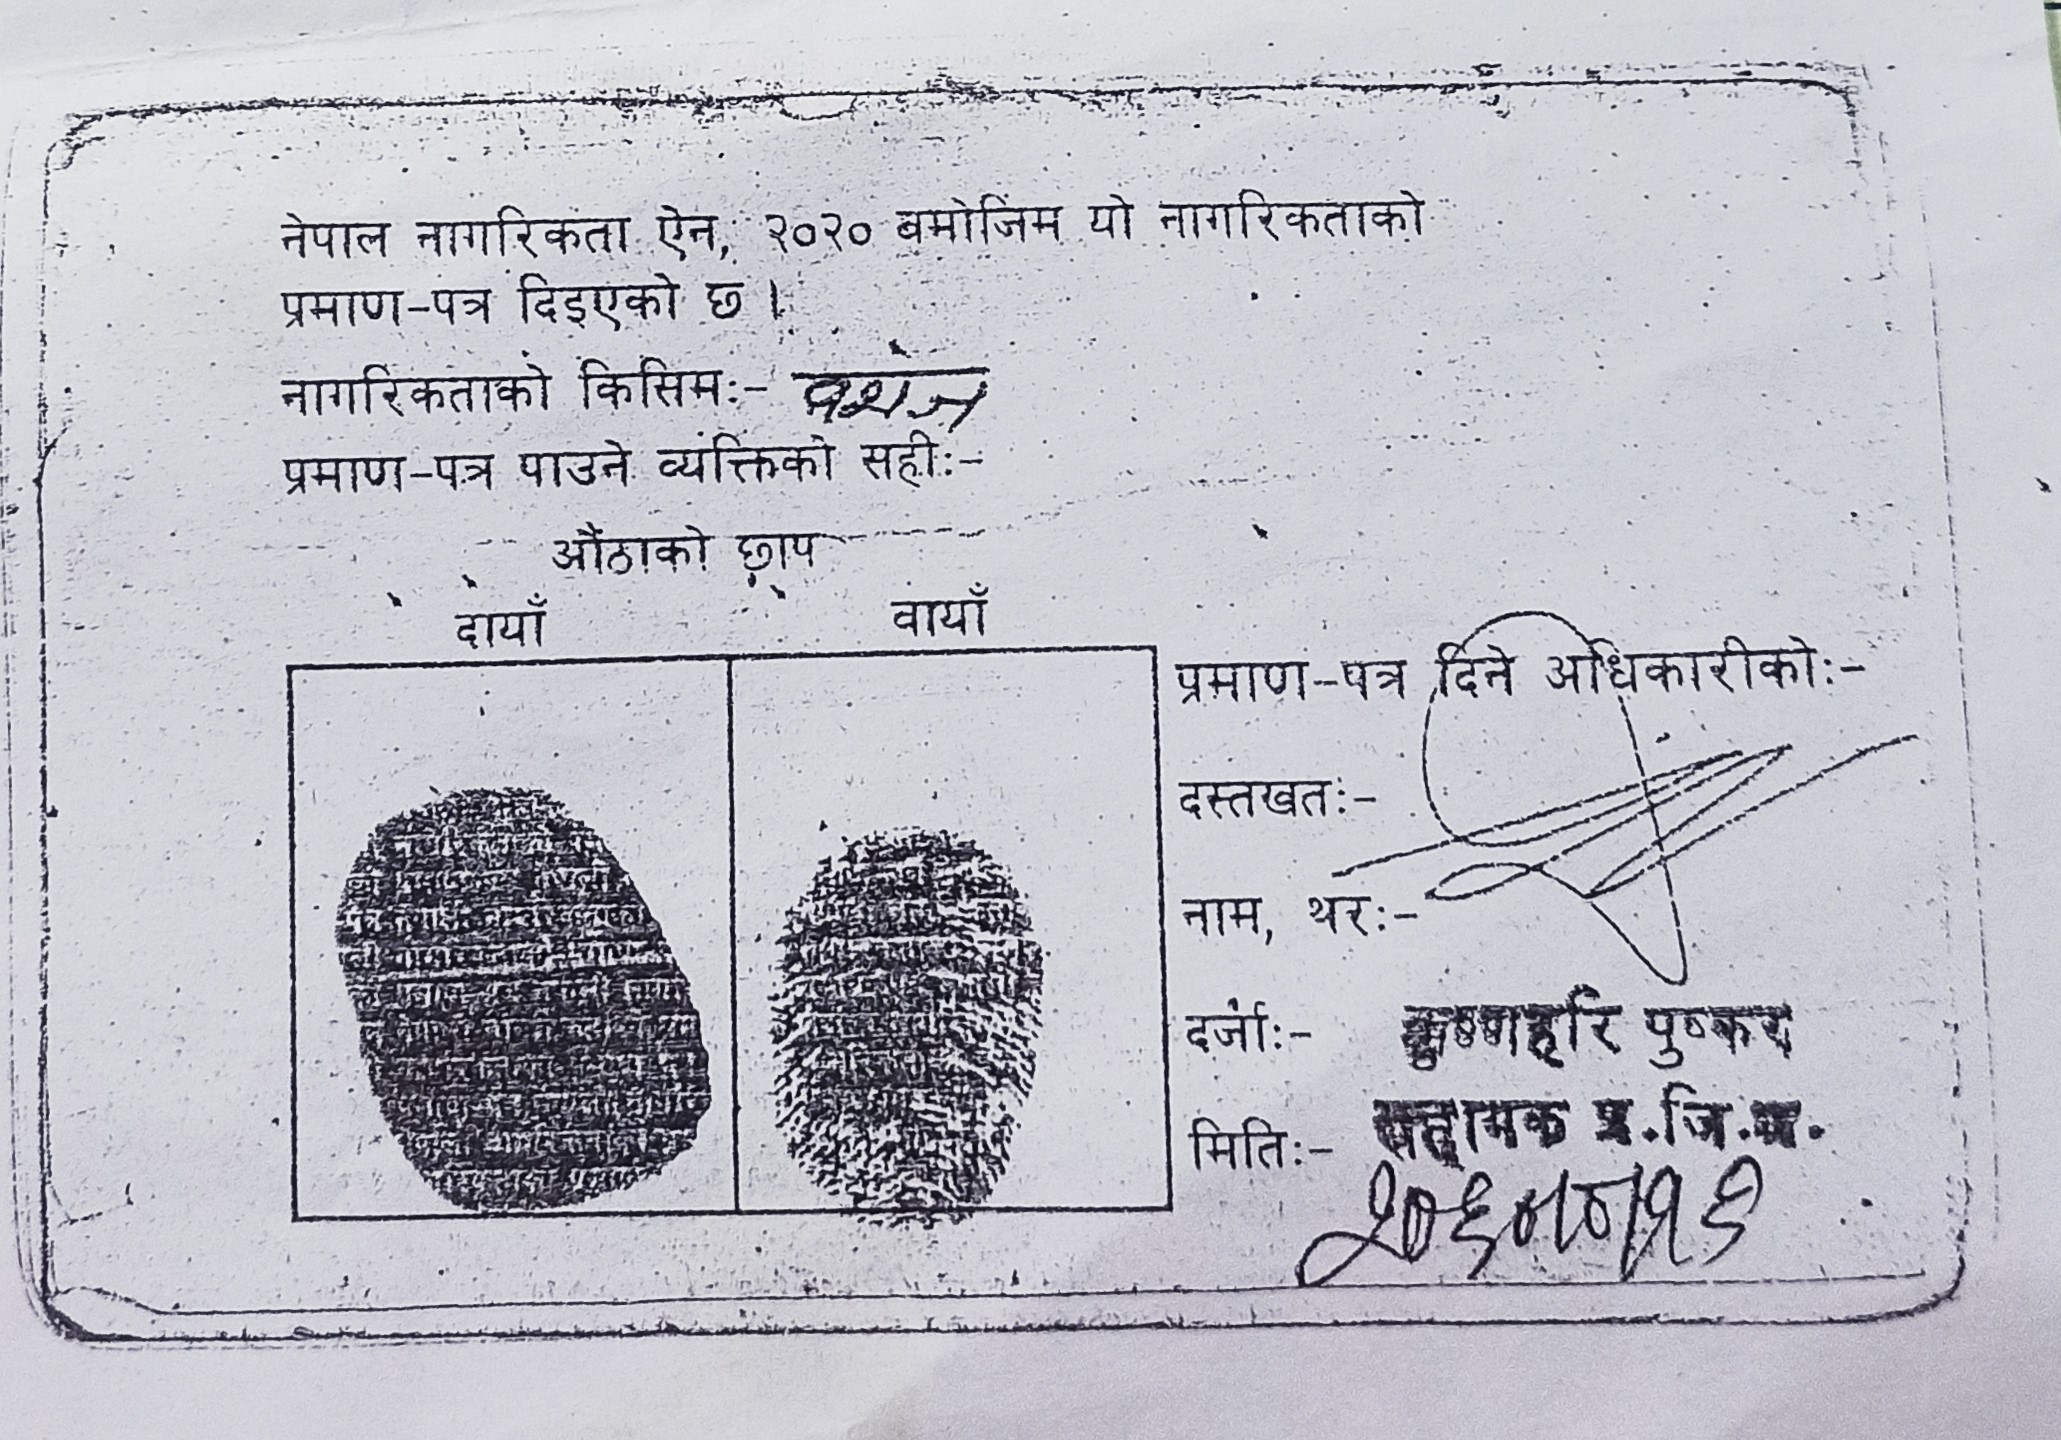 नेपाल नागरिकता ऐन, २०२० बमोजिम यो नागरिकताको
प्रमाण-पत्र दिइएको छ ।
नागरिकताको किसिमः- वंशज
प्रमाण-पत्र पाउने व्यक्तिको सहीः-
औंठाको छाप
दायाँ
वायाँ
प्रमाण-पत्र दिने अधिकारीकोः-
दस्तखतः-
नाम, थरः-
दर्जाः- कृष्णहरि पुष्कर
मितिः- सहायक प्र.जि.अ.